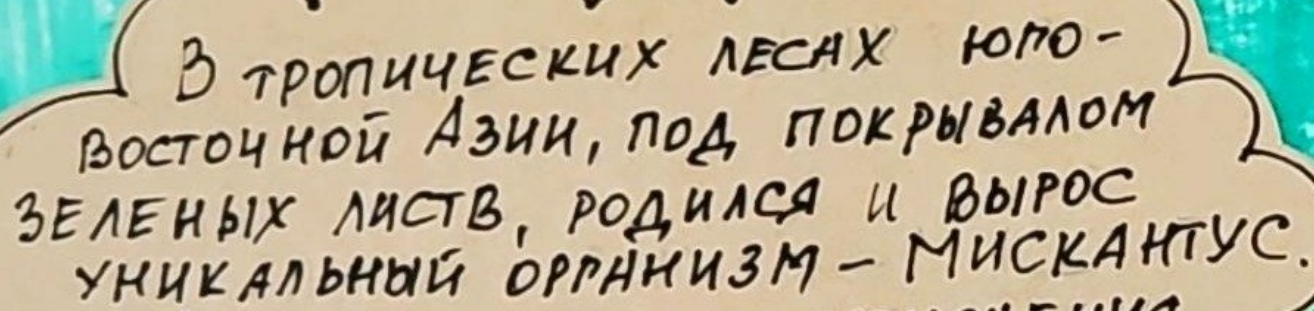 В ТРОПИЧЕСКИХ ЛЕСАХ ЮГО-
ВОСТОЧНОЙ АЗИИ, ПОД ПОКРЫВАЛОМ
ЗЕЛЕНЫХ ЛИСТВ, РОДИЛСЯ И ВЫРОС
УНИКАЛЬНЫЙ ОРГАНИЗМ – МИСКАНТУС.